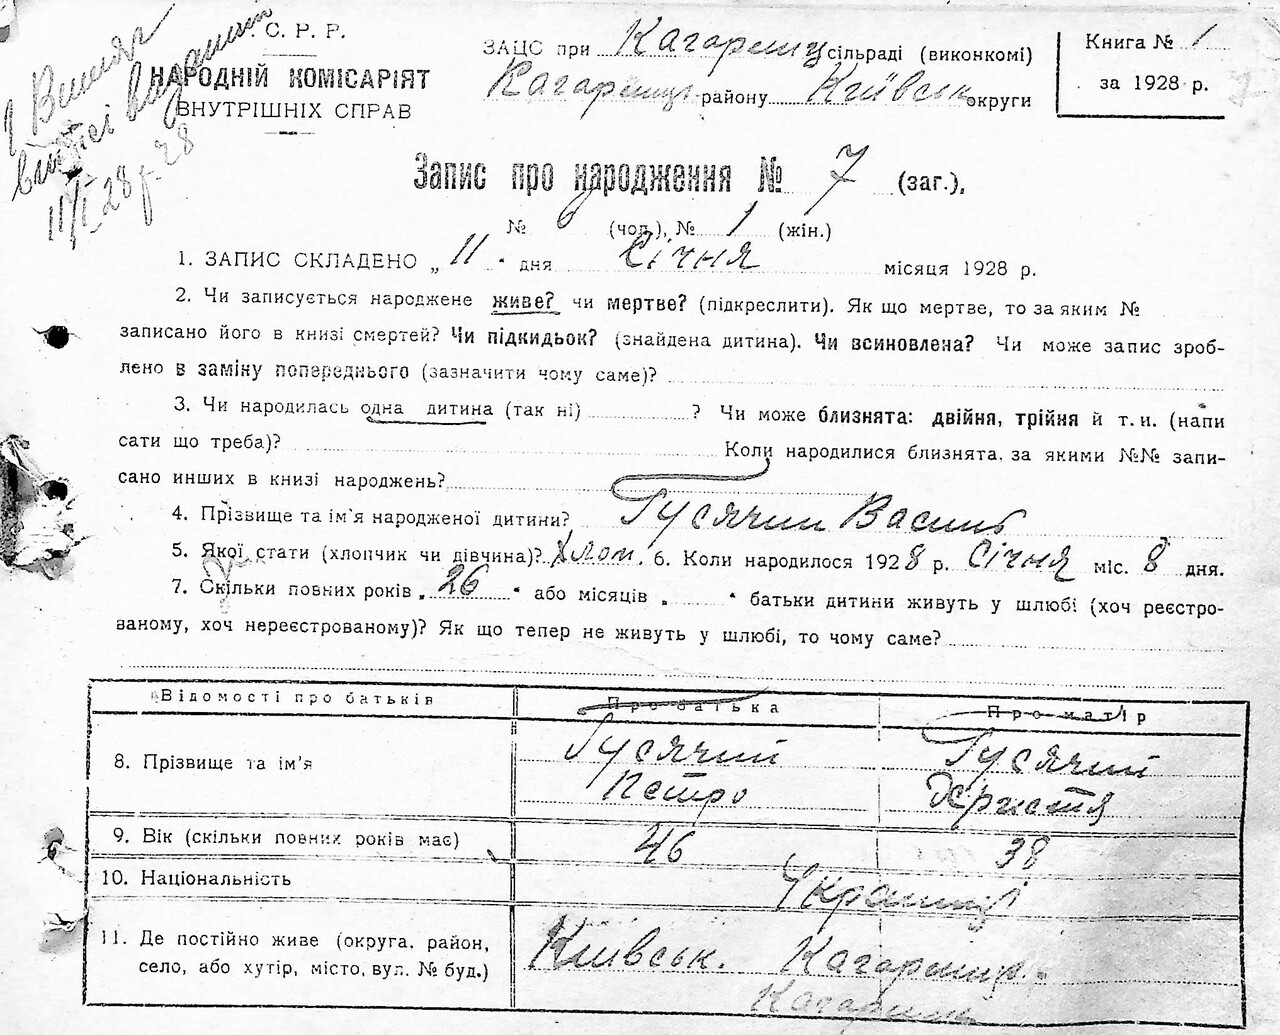 . С. Р. Р.
НАРОДНІЙ КОМІСАРІЯТ
ВНУТРІШНІХ СПРАВ
ЗАЦС при Кагарлиц сільраді (виконкомі)
Кагарлиць району Київськ округи
Книга № 1
за 1928 р.
11/I 28 р.
Запис про народження № 7 (заг.),
№ 6 (чол.), № 1 (жін.)
1. ЗАПИС СКЛАДЕНО „ 11 " дня Січня місяця 1928 р.
2. Чи записується народжене живе? чи мертве? (підкреслити). Як що мертве, то за яким №
записано його в книзі смертей? Чи підкидьок? (знайдена дитина). Чи всиновлена? Чи може запис зроб-
лено в заміну попереднього (зазначити чому саме)?
3. Чи народилась одна дитина (так ні) ? Чи може близнята: двійня, трійня й т. и. (напи
сати що треба)? Коли народилися близнята, за якими №№ запи-
сано инших в книзі народжень?
4. Прізвище та ім'я народженої дитини? Гусячий Василь
5. Якої стати (хлопчик чи дівчина)? Хлоп. 6. Коли народилося 1928 р. Січня міс. 8 дня.
7. Скільки повних років „ 26 " або місяців „ " батьки дитини живуть у шлюбі (хоч реєстро-
ваному, хоч нереєстрованому)? Як що тепер не живуть у шлюбі, то чому саме?
Відомості про батьків Про батька Про матір
8. Прізвище та ім'я Гусячий Петро Гусячий Христя
9. Вік (скільки повних років має) 46 38
10. Національність Українці
11. Де постійно живе (округа, район,
село, або хутір, місто, вул. № буд.) Київськ. Кагарлиц.
Кагарлик